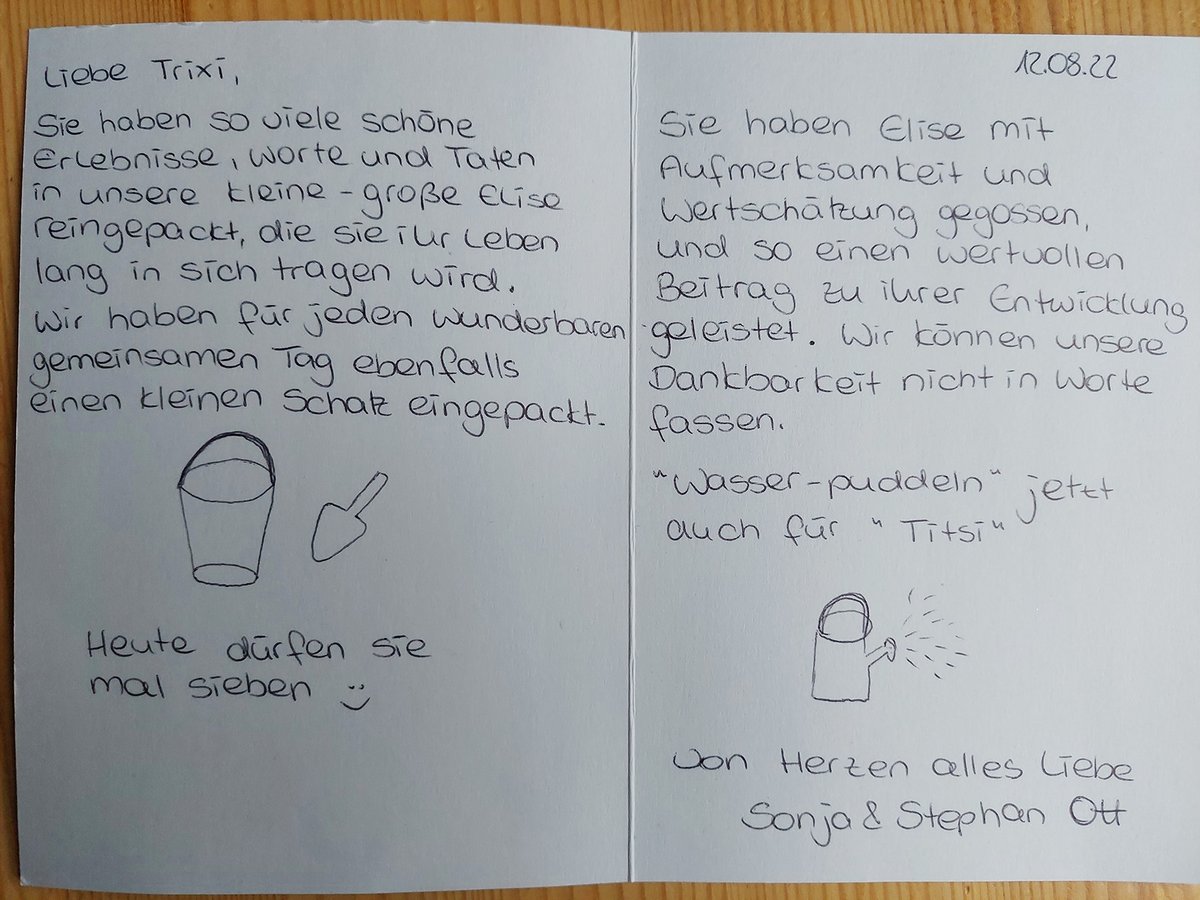 Liebe Trixi,
Sie haben so viele schöne
Erlebnisse, Worte und Taten
in unsere kleine - große Elise
reingepackt, die sie ihr Leben
lang in sich tragen wird.
Wir haben für jeden wunderbaren
gemeinsamen Tag ebenfalls
einen kleinen Schatz eingepackt.
Heute dürfen sie
mal sieben :)
12.08.22
Sie haben Elise mit
Aufmerksamkeit und
Wertschätzung gegossen,
und so einen wertvollen
Beitrag zu ihrer Entwicklung
geleistet. Wir können unsere
Dankbarkeit nicht in Worte
fassen.
"Wasser-puddeln" jetzt
auch für "Titsi"
Von Herzen alles Liebe
Sonja & Stephan Ott